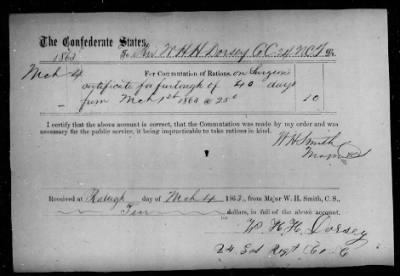 The Confederate States,
1863 To Mr W. H. H. Dorsey Co C 24 NCT Dr.
Mch 4 For Commutation of Rations, on Surgeons
certificate for furlough of 40 days
from Mch 1st 1863 @ 25c 10
I certify that the above account is correct, that the Commutation was made by my order and was
necessary for the public service, it being impracticable to take rations in kind.
W H Smith
Received at Raleigh day of Mch 4 1863, from Major W. H. Smith, C. S.,
Ten dollars, in full of the above account.
W. H. H. Dorsey
24 Regt Co C